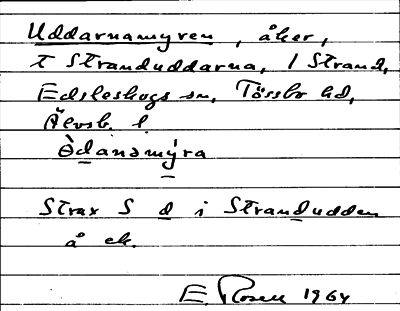 Uddarnamyren, åker,
t Stranduddarna, 1 Strand,
Edsleskogs sn, Tössbo hd,
Älvsb. l.
Òdanamýra
Strax S d i Strandudden
å ek.
E. Rosell 1964